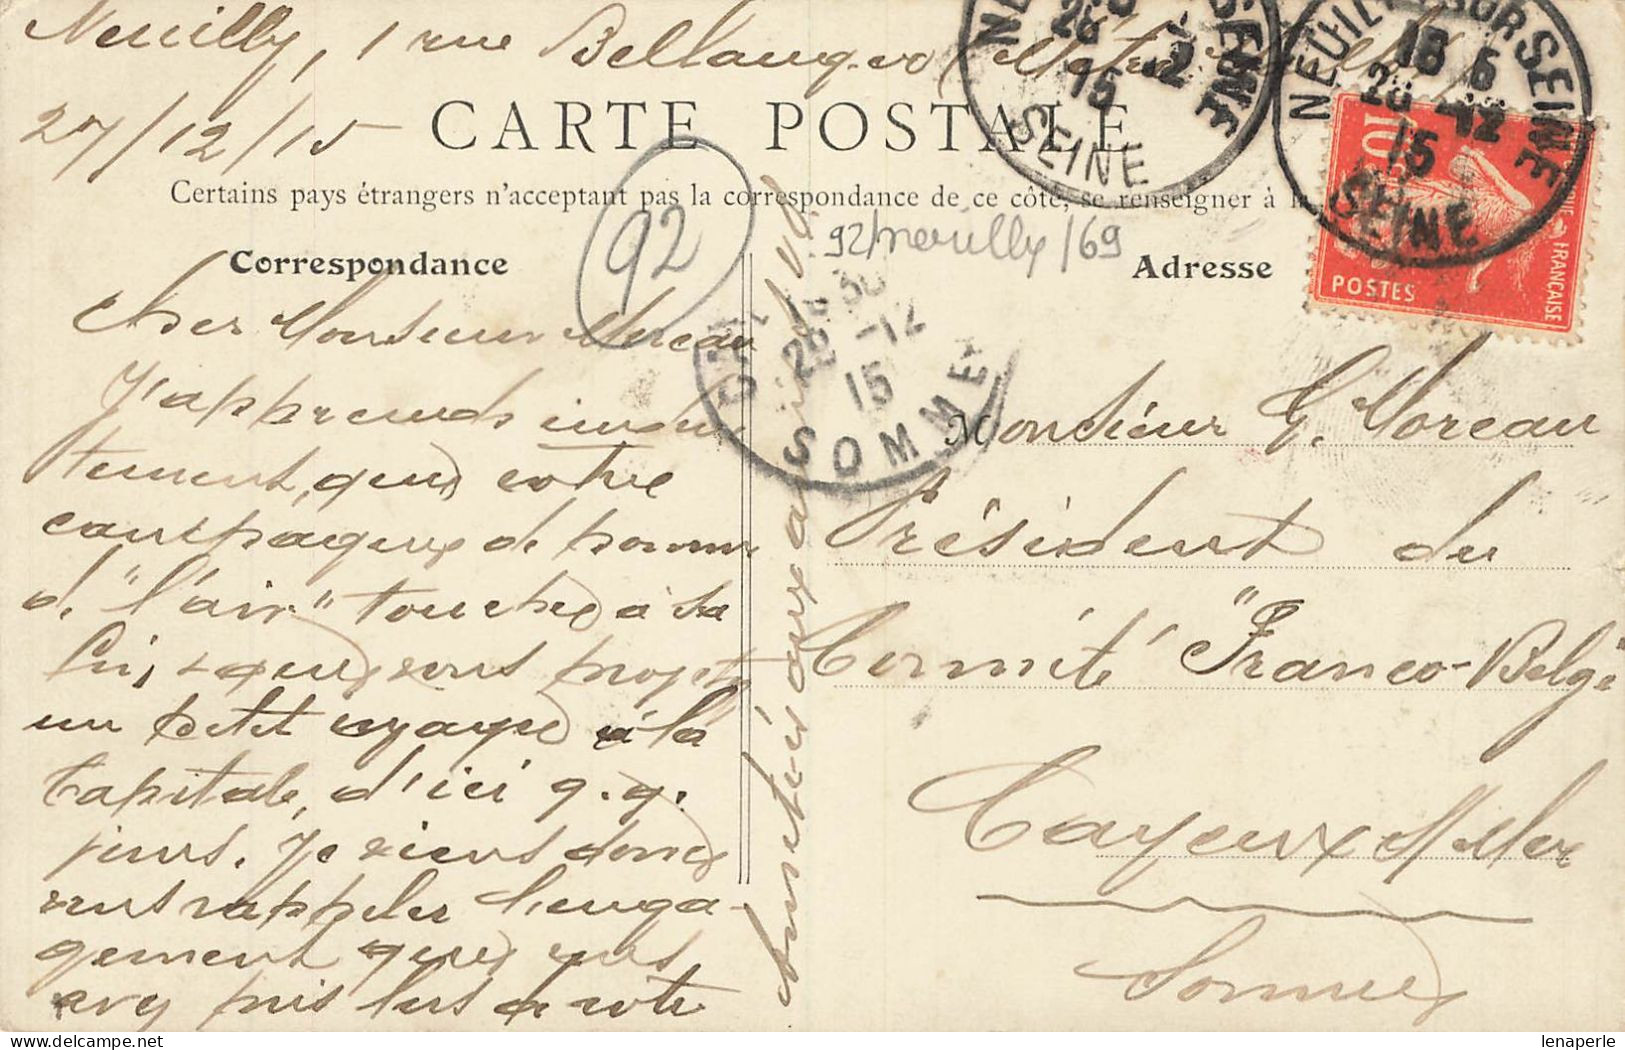 Neuilly, 1 rue Bellanger
27/12/15
CARTE POSTALE
Certains pays étrangers n'acceptent pas la correspondance de ce côté, se renseigner à la
Correspondance
Adresse
92
92/neuilly/69
NEUILLY SUR SEINE
15
28 -12
15
SEINE
28 -12
15
SEINE
28 -12
15
SOMME
10
POSTES
FRANÇAISE
Cher Monsieur Moreau
J'apprends
que votre
campagne de
d. "l'air" touche à sa
fin, & que vous projetez
un petit voyage à la
Capitale, d'ici q.q.
jours. Je viens donc
vous rappeler l'enga-
gement que vous
avez pris lors de votre
Monsieur G. Moreau
Président du
Comité "Franco-Belge
Cayeux s/Mer
Somme
lenaperle